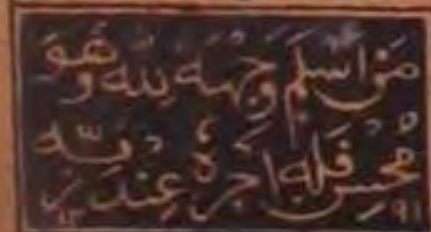 مَنْ أَسْلَمَ وَجْهَهُ لِلّٰه وَهُوَ
مُحْسِن فَلَهُ أَجْرُهُ عِنْدَ رَبِّه